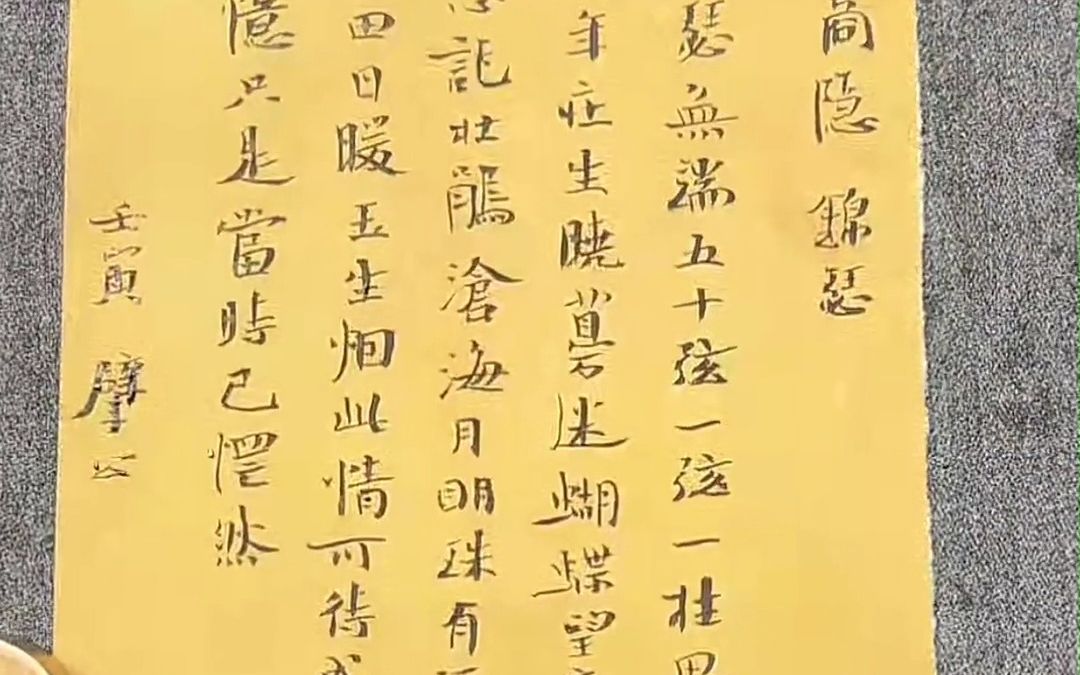 商隐 錦瑟
瑟無端五十弦一弦一柱思
年庄生曉夢迷蝴蝶望
託杜鵑滄海月明珠有
田日暖玉生烟此情可待成
憶只是當時已惘然
壬寅